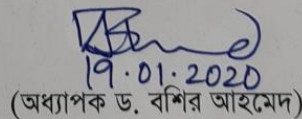 19.01.2020
(অধ্যাপক ড. বশির আহমেদ)